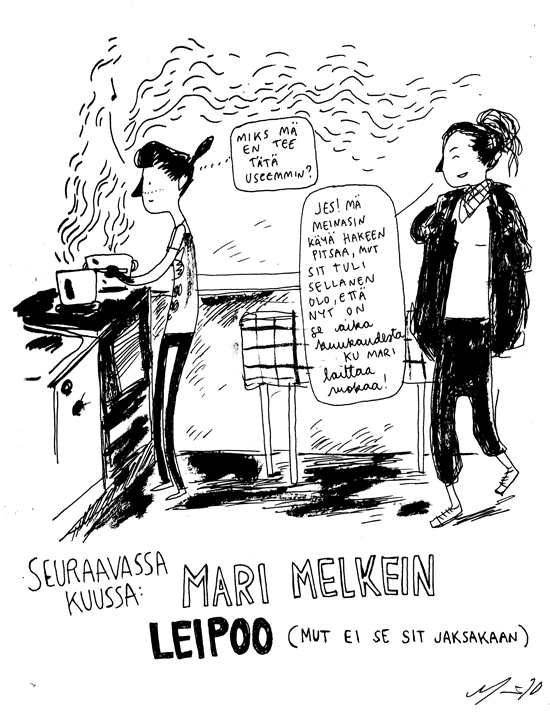 MIKS MÄ
EN TEE
TÄTÄ
USEEMMIN?
JES! MÄ
MEINASIN
KÄYÄ HAKEEN
PITSAA, MUT
SIT TULI
SELLANEN
OLO, ETTÄ
NYT ON
se aika
kuukaudesta
KU MARI
laittaa
ruokaa!
SEURAAVASSA
KUUSSA:
MARI MELKEIN
LEIPOO (MUT EI SE SIT JAKSAKAAN)